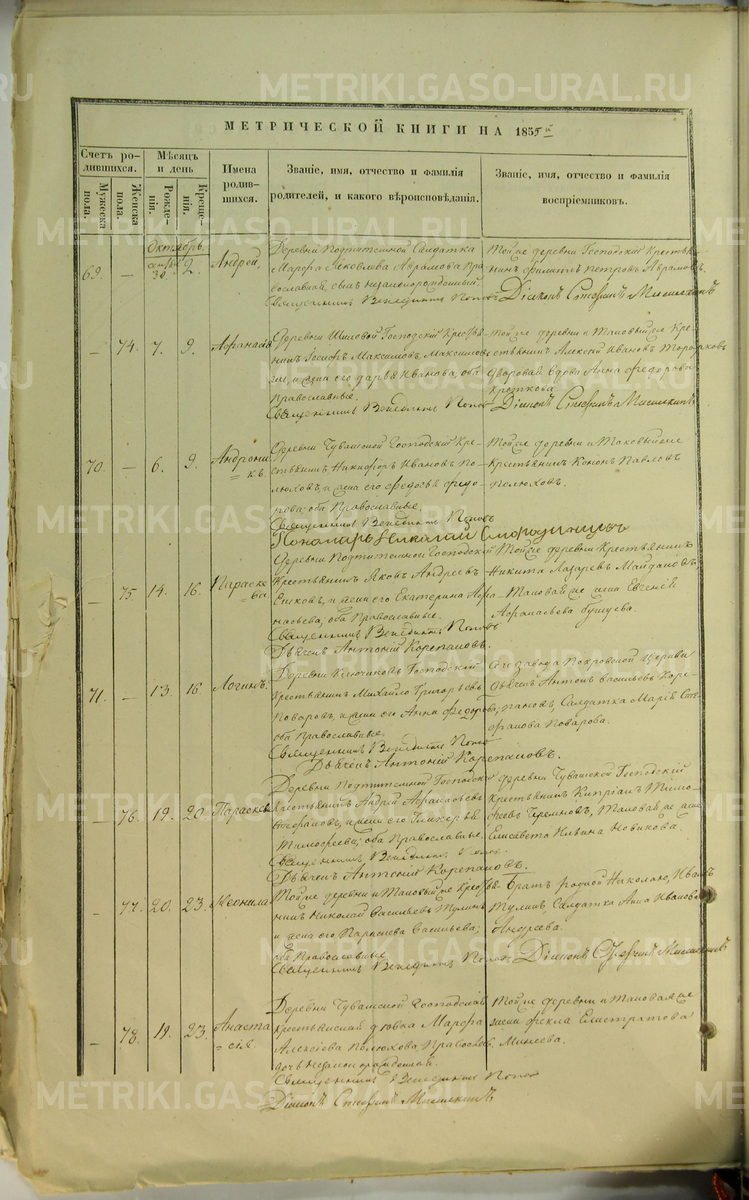 METRIKI.GASO-URAL.RU
МЕТРИЧЕСКОЙ КНИГИ НА 1855 й
Счетъ ро-
дившихся.
Мѣсяцъ
и день
Имена
родив-
шихся.
Званіе, имя, отчество и фамилія
родителей, и какого вѣроисповѣданія.
Званіе, имя, отчество и фамилія
воспріемниковъ.
Мужеска
пола.
Женска
пола.
Рожде-
нія.
Креще-
нія.
Октябрь.
69. — 30. 2. Андрей
Солдатка
Марфа Яковлева Абрамова Пра
вославная, сынъ незаконорожденный.
Священникъ Венедиктъ Поповъ
Тойже деревни Господский Крестья-
нинъ Филиппъ Петровъ Абрамовъ.
Діаконъ Стефанъ
— 74. 7. 9. Афанасія
Деревни Шиловой Господский Крестья-
нинъ Іосифъ Максимовъ Максимовъ
и жена его Дарья Иванова, оба
Православные.
Священникъ Венедиктъ Поповъ
Тойже деревни и Таковыйже Кре-
стьянинъ Алексѣй Ивановъ
Дворовая вдова Анна Федорова
Діаконъ Стефанъ
70. — 6. 9. Андрони
къ
Деревни Чувашской Господский Кре-
стьянинъ Никифоръ Ивановъ По-
люховъ, и жена его Федосья Федо-
рова; оба Православные.
Священникъ Венедиктъ Поповъ
Пономарь Николай
Тойже деревни и Таковыйже
Крестьянинъ Кононъ Павловъ
Полюховъ.
— 75. 14. 16. Параске
ва
Господский
Крестьянинъ Яковъ Андреевъ
и жена его Екатерина Афа-
насьева; оба Православные.
Священникъ Венедиктъ Поповъ
Дьячекъ Антоній Корепановъ.
Тойже деревни Крестьянинъ
Никита Лазаревъ Майдановъ
Таковаяже жена Евгенія
Афанасьева
71. — 13. 16. Логинъ.
Деревни Господский
Крестьянинъ Михайло Григорьевъ
Поваровъ, и жена его Анна Федорова;
оба Православные.
Священникъ Венедиктъ Поповъ
Дьячекъ Антоній Корепановъ.
завода Покровской Церкви
Дьячекъ Антонъ Васильевъ Коре-
пановъ, Солдатка Марія Сте-
фанова Поварова.
— 76. 19. 20. Параскева
Господский
Крестьянинъ Андрей Афанасьевъ
и жена его Гликерья
Тимофеева; оба Православные.
Священникъ Венедиктъ Поповъ
Дьячекъ Антоній Корепановъ.
Деревни Чувашской Господский
Крестьянинъ Кипріанъ Тимо-
феевъ Таковая же жена
Елисавета Ильина Новикова.
— 77. 20. 23. Неонила
Тойже деревни и Таковыйже Крестья-
нинъ Николай Васильевъ Тулинъ
и жена его Парасковья Васильева;
оба Православные
Священникъ Венедиктъ Поповъ
Братъ родной Николаю, Иванъ
Тулинъ Солдатка Анна Иванова
Андреева.
Діаконъ Стефанъ
— 78. 19. 23. Анаста
сія.
Деревни Чувашской Господская
крестьянская дѣвка Марфа
Алексѣева Полюхова Православ.
дочь незаконорожденная.
Священникъ Венедиктъ Поповъ
Діаконъ Стефанъ
Тойже деревни и Таковаяже
жена Фекла Елистратова
Минеева.